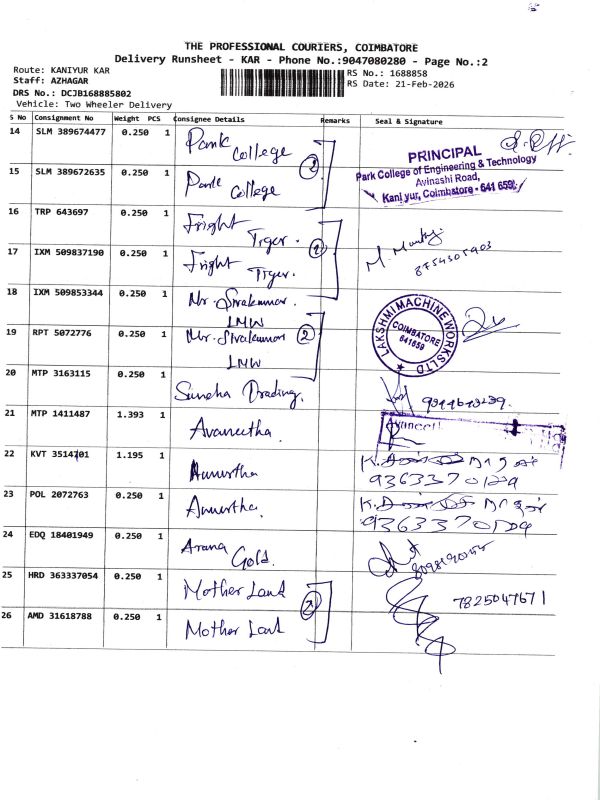 THE PROFESSIONAL COURIERS, COIMBATORE
Delivery Runsheet - KAR - Phone No.:9047080280 - Page No.:2
Route: KANIYUR KAR
Staff: AZHAGAR
DRS No.: DCJB168885802
Vehicle: Two Wheeler Delivery
RS No.: 1688858
RS Date: 21-Feb-2026
S No Consignment No Weight PCS Consignee Details Remarks Seal & Signature
14 SLM 389674477 0.250 1 Park College
15 SLM 389672635 0.250 1 Park College
2
PRINCIPAL
Park College of Engineering & Technology
Avinashi Road,
Kaniyur, Coimbatore - 641 659.
16 TRP 643697 0.250 1 Fright Tiger.
17 IXM 509837190 0.250 1 Fright Tiger.
8754305903
18 IXM 509853344 0.250 1 Mr. Sivakumar. LMW
19 RPT 5072776 0.250 1 Mr. Sivakumar LMW
2
LAKSHMI MACHINE WORKS LTD
COIMBATORE
641659
20 MTP 3163115 0.250 1 Suneha Trading.
21 MTP 1411487 1.393 1 Avaneetha.
22 KVT 3514701 1.195 1
23 POL 2072763 0.250 1
24 EDQ 18401949 0.250 1 Arana Gold.
25 HRD 363337054 0.250 1 Mother Land
26 AMD 31618788 0.250 1 Mother Land
2
7825047671